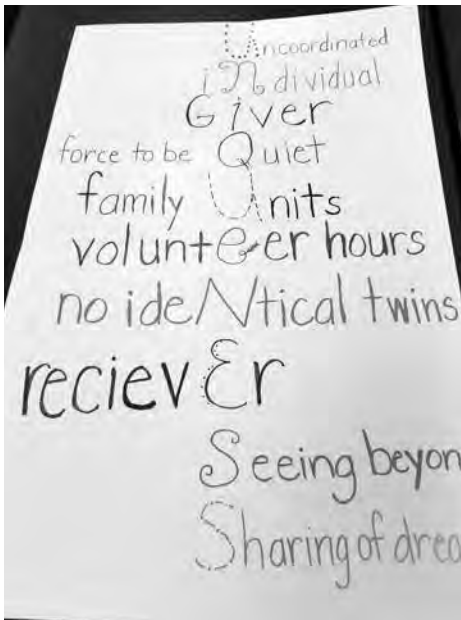 Uncoordinated
iNdividual
GIver
force to be Quiet
family Units
voluntEer hours
no ideNtical twins
recievEr
Seeing beyon
Sharing of drea